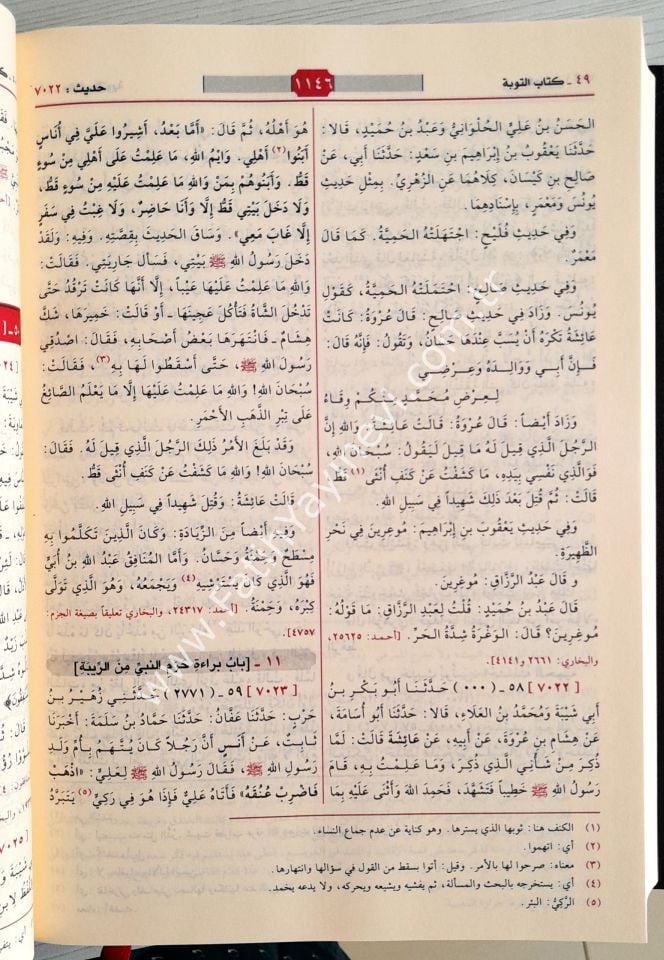 ٤٩ - كتاب التوبة
١١٤٦
حديث: ٧٠٢٢
الحَسَنُ بنُ عَلِيٍّ الحُلْوَانِيُّ وَعَبْدُ بنُ حُمَيْدٍ، قَالا:
حَدَّثَنَا يَعْقُوبُ بنُ إِبْرَاهِيمَ بنِ سَعْدٍ: حَدَّثَنَا أَبِي، عَنْ
صَالِحِ بنِ كَيْسَانَ، كِلَاهُمَا عَنِ الزُّهْرِيِّ. بِمِثْلِ حَدِيثِ
يُونُسَ وَمَعْمَرٍ، بِإِسْنَادِهِمَا.
وَفِي حَدِيثِ فُلَيْحٍ: اجْتَهَلَتْهُ الحَمِيَّةُ. كَمَا قَالَ
مَعْمَرٌ.
وَفِي حَدِيثِ صَالِحٍ: احْتَمَلَتْهُ الحَمِيَّةُ، كَقَوْلِ
يُونُسَ. وَزَادَ فِي حَدِيثِ صَالِحٍ: قَالَ عُرْوَةُ: كَانَتْ
عَائِشَةُ تَكْرَهُ أَنْ يُسَبَّ عِنْدَهَا حَسَّانُ، وَتَقُولُ: فَإِنَّهُ قَالَ:
فَإِنَّ أَبِي وَوَالِدَهُ وَعِرْضِي
لِعِرْضِ مُحَمَّدٍ مِنْكُمْ وِقَاءُ
وَزَادَ أَيْضاً: قَالَ عُرْوَةُ: قَالَتْ عَائِشَةُ: وَاللهِ إِنَّ
الرَّجُلَ الَّذِي قِيلَ لَهُ مَا قِيلَ لَيَقُولُ: سُبْحَانَ اللهِ،
فَوَالَّذِي نَفْسِي بِيَدِهِ، مَا كَشَفْتُ عَنْ كَنَفِ أُنْثَى (١) قَطُّ.
قَالَتْ: ثُمَّ قُتِلَ بَعْدَ ذَلِكَ شَهِيداً فِي سَبِيلِ اللهِ.
وَفِي حَدِيثِ يَعْقُوبَ بنِ إِبْرَاهِيمَ: مُوعِرِينَ فِي نَحْرِ
الظَّهِيرَةِ.
و قَالَ عَبْدُ الرَّزَّاقِ: مُوغِرِينَ.
قَالَ عَبْدُ بنُ حُمَيْدٍ: قُلْتُ لِعَبْدِ الرَّزَّاقِ: مَا قَوْلُهُ:
مُوغِرِينَ؟ قَالَ: الوَغْرَةُ شِدَّةُ الحَرِّ. [أحمد: ٢٥٦٢٥،
والبخاري: ٢٦٦١ و٤١٤١].
[٧٠٢٢] ٥٨ - (٠٠٠) حَدَّثَنَا أَبُو بَكْرِ بنُ
أَبِي شَيْبَةَ وَمُحَمَّدُ بنُ العَلَاءِ، قَالا: حَدَّثَنَا أَبُو أُسَامَةَ،
عَنْ هِشَامِ بنِ عُرْوَةَ، عَنْ أَبِيهِ، عَنْ عَائِشَةَ قَالَتْ: لَمَّا
ذُكِرَ مِنْ شَأْنِي الَّذِي ذُكِرَ، وَمَا عَلِمْتُ بِهِ، قَامَ
رَسُولُ اللهِ ﷺ خَطِيباً فَتَشَهَّدَ، فَحَمِدَ اللهَ وَأَثْنَى عَلَيْهِ بِمَا
هُوَ أَهْلُهُ، ثُمَّ قَالَ: «أَمَّا بَعْدُ، أَشِيرُوا عَلَيَّ فِي أُنَاسٍ
أَبَنُوا(٢) أَهْلِي. وَايْمُ اللهِ، مَا عَلِمْتُ عَلَى أَهْلِي مِنْ سُوءٍ
قَطُّ. وَأَبَنُوهُمْ بِمَنْ وَاللهِ مَا عَلِمْتُ عَلَيْهِ مِنْ سُوءٍ قَطُّ،
وَلَا دَخَلَ بَيْتِي قَطُّ إِلَّا وَأَنَا حَاضِرٌ، وَلَا غِبْتُ فِي سَفَرٍ
إِلَّا غَابَ مَعِي». وَسَاقَ الحَدِيثَ بِقِصَّتِهِ. وَفِيهِ: وَلَقَدْ
دَخَلَ رَسُولُ اللهِ ﷺ بَيْتِي، فَسَأَلَ جَارِيَتِي. فَقَالَتْ:
وَاللهِ مَا عَلِمْتُ عَلَيْهَا عَيْباً، إِلَّا أَنَّهَا كَانَتْ تَرْقُدُ حَتَّى
تَدْخُلَ الشَّاةُ فَتَأْكُلَ عَجِينَهَا - أَوْ قَالَتْ: خَمِيرَهَا، شَكَّ
هِشَامٌ - فَانْتَهَرَهَا بَعْضُ أَصْحَابِهِ، فَقَالَ: اصْدُقِي
رَسُولَ اللهِ ﷺ، حَتَّى أَسْقَطُوا لَهَا بِهِ (٣)، فَقَالَتْ:
سُبْحَانَ اللهِ! وَاللهِ مَا عَلِمْتُ عَلَيْهَا إِلَّا مَا يَعْلَمُ الصَّائِغُ
عَلَى تِبْرِ الذَّهَبِ الأَحْمَرِ.
وَقَدْ بَلَغَ الأَمْرُ ذَلِكَ الرَّجُلَ الَّذِي قِيلَ لَهُ. فَقَالَ:
سُبْحَانَ اللهِ! وَاللهِ مَا كَشَفْتُ عَنْ كَنَفِ أُنْثَى قَطُّ.
قَالَتْ عَائِشَةُ: وَقُتِلَ شَهِيداً فِي سَبِيلِ اللهِ.
وَفِيهِ أَيْضاً مِنَ الزِّيَادَةِ: وَكَانَ الَّذِينَ تَكَلَّمُوا بِهِ
مِسْطَحٌ وَحَمْنَةُ وَحَسَّانُ. وَأَمَّا المُنَافِقُ عَبْدُ اللهِ بنُ أُبَيٍّ
فَهُوَ الَّذِي كَانَ يَسْتَوْشِيهِ (٤) وَيَجْمَعُهُ، وَهُوَ الَّذِي تَوَلَّى
كِبْرَهُ، وَحَمْنَةُ. [أحمد: ٢٤٣١٧، والبخاري تعليقاً بصيغة الجزم:
٤٧٥٧].
١١ - [بابُ براءةِ حَرَمِ النبيِّ مِنَ الرِّيبَةِ]
[٧٠٢٣] ٥٩ - (٢٧٧١) حَدَّثَنِي زُهَيْرُ بنُ
حَرْبٍ: حَدَّثَنَا عَفَّانُ: حَدَّثَنَا حَمَّادُ بنُ سَلَمَةَ: أَخْبَرَنَا
ثَابِتٌ، عَنْ أَنَسٍ أَنَّ رَجُلاً كَانَ يُتَّهَمُ بِأُمِّ وَلَدِ
رَسُولِ اللهِ ﷺ، فَقَالَ رَسُولُ اللهِ ﷺ لِعَلِيٍّ: «اذْهَبْ
فَاضْرِبْ عُنُقَهُ» فَأَتَاهُ عَلِيٌّ فَإِذَا هُوَ فِي رَكِيٍّ(٥) يَتَبَرَّدُ
(١) الكنف هنا: ثوبها الذي يسترها. وهو كناية عن عدم جماع النساء.
(٢) أي: اتهموا.
(٣) معناه: صرحوا لها بالأمر. وقيل: أتوا بسقط من القول في سؤالها وانتهارها.
(٤) أي: يستخرجه بالبحث والمسألة، ثم يفشيه ويشيعه ويحركه، ولا يدعه يخمد.
(٥) الرَّكِيُّ: البئر.